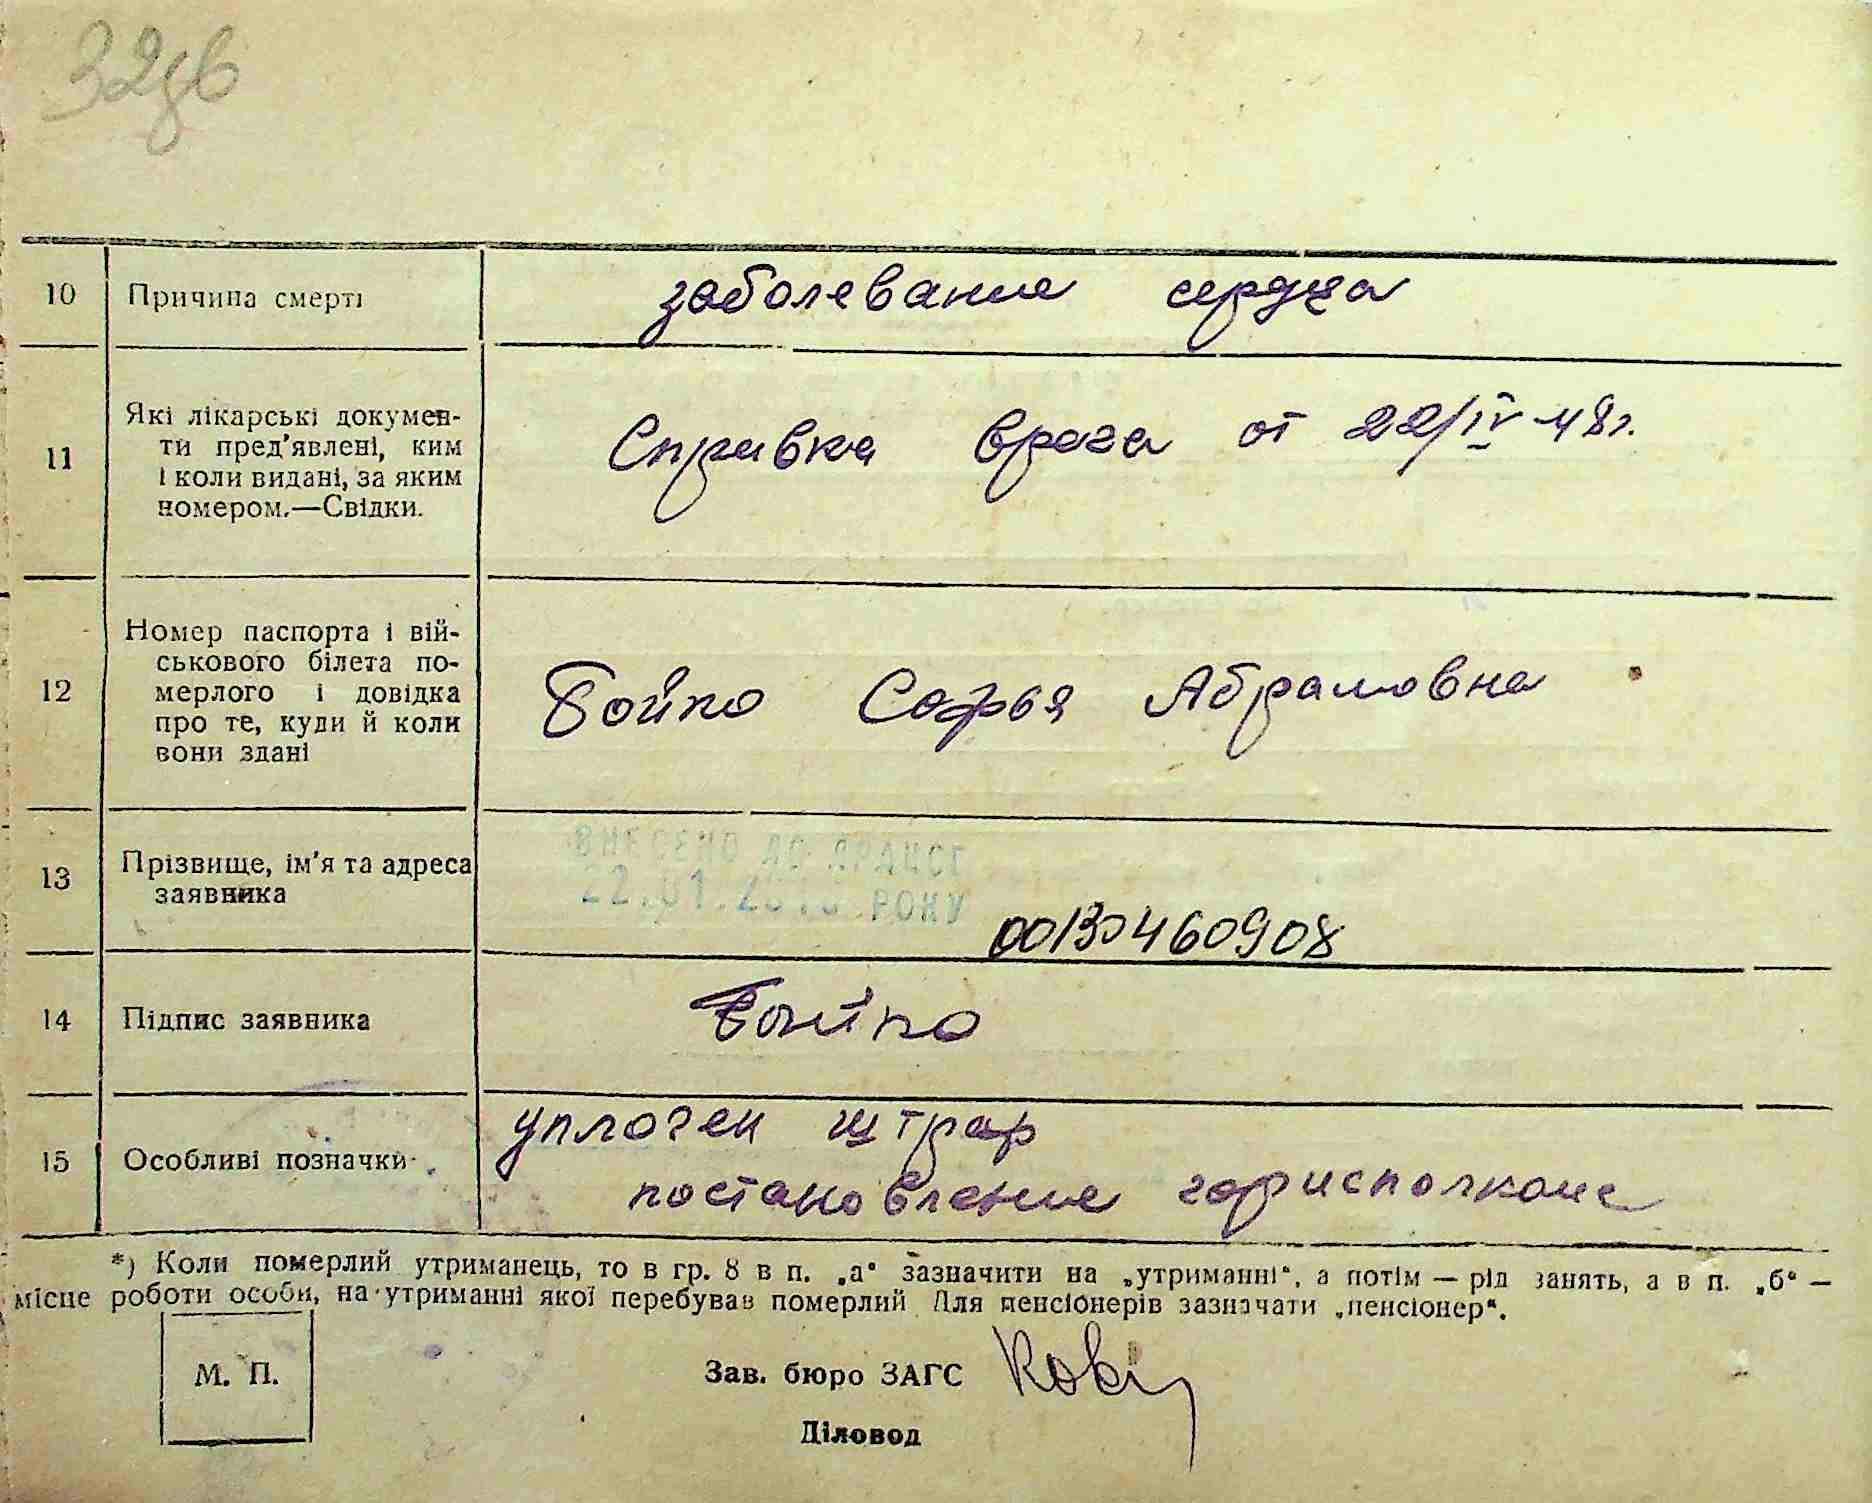 32зв
10 Причина смерті заболевание сердца
11 Які лікарські докумен-
ти пред'явлені, ким
і коли видані, за яким
номером.—Свідки.
Справка врача от 22/IV-48г.
12 Номер паспорта і вій-
ськового білета по-
мерлого і довідка
про те, куди й коли
вони здані
Бойко Софья Абрамовна
13 Прізвище, ім'я та адреса
заявника
ВНЕСЕНО ДО ДРАЦСГ
22.01.201 РОКУ
00130460908
14 Підпис заявника Бойко
15 Особливі позначки
уплочен штраф
постановление горисполкоме
*) Коли померлий утриманець, то в гр. 8 в п. „а“ зазначити на „утриманні“, а потім — рід занять, а в п. „б“ —
місце роботи особи, на утриманні якої перебував померлий. Для пенсіонерів зазначати „пенсіонер“.
М. П.
Зав. бюро ЗАГС
Діловод